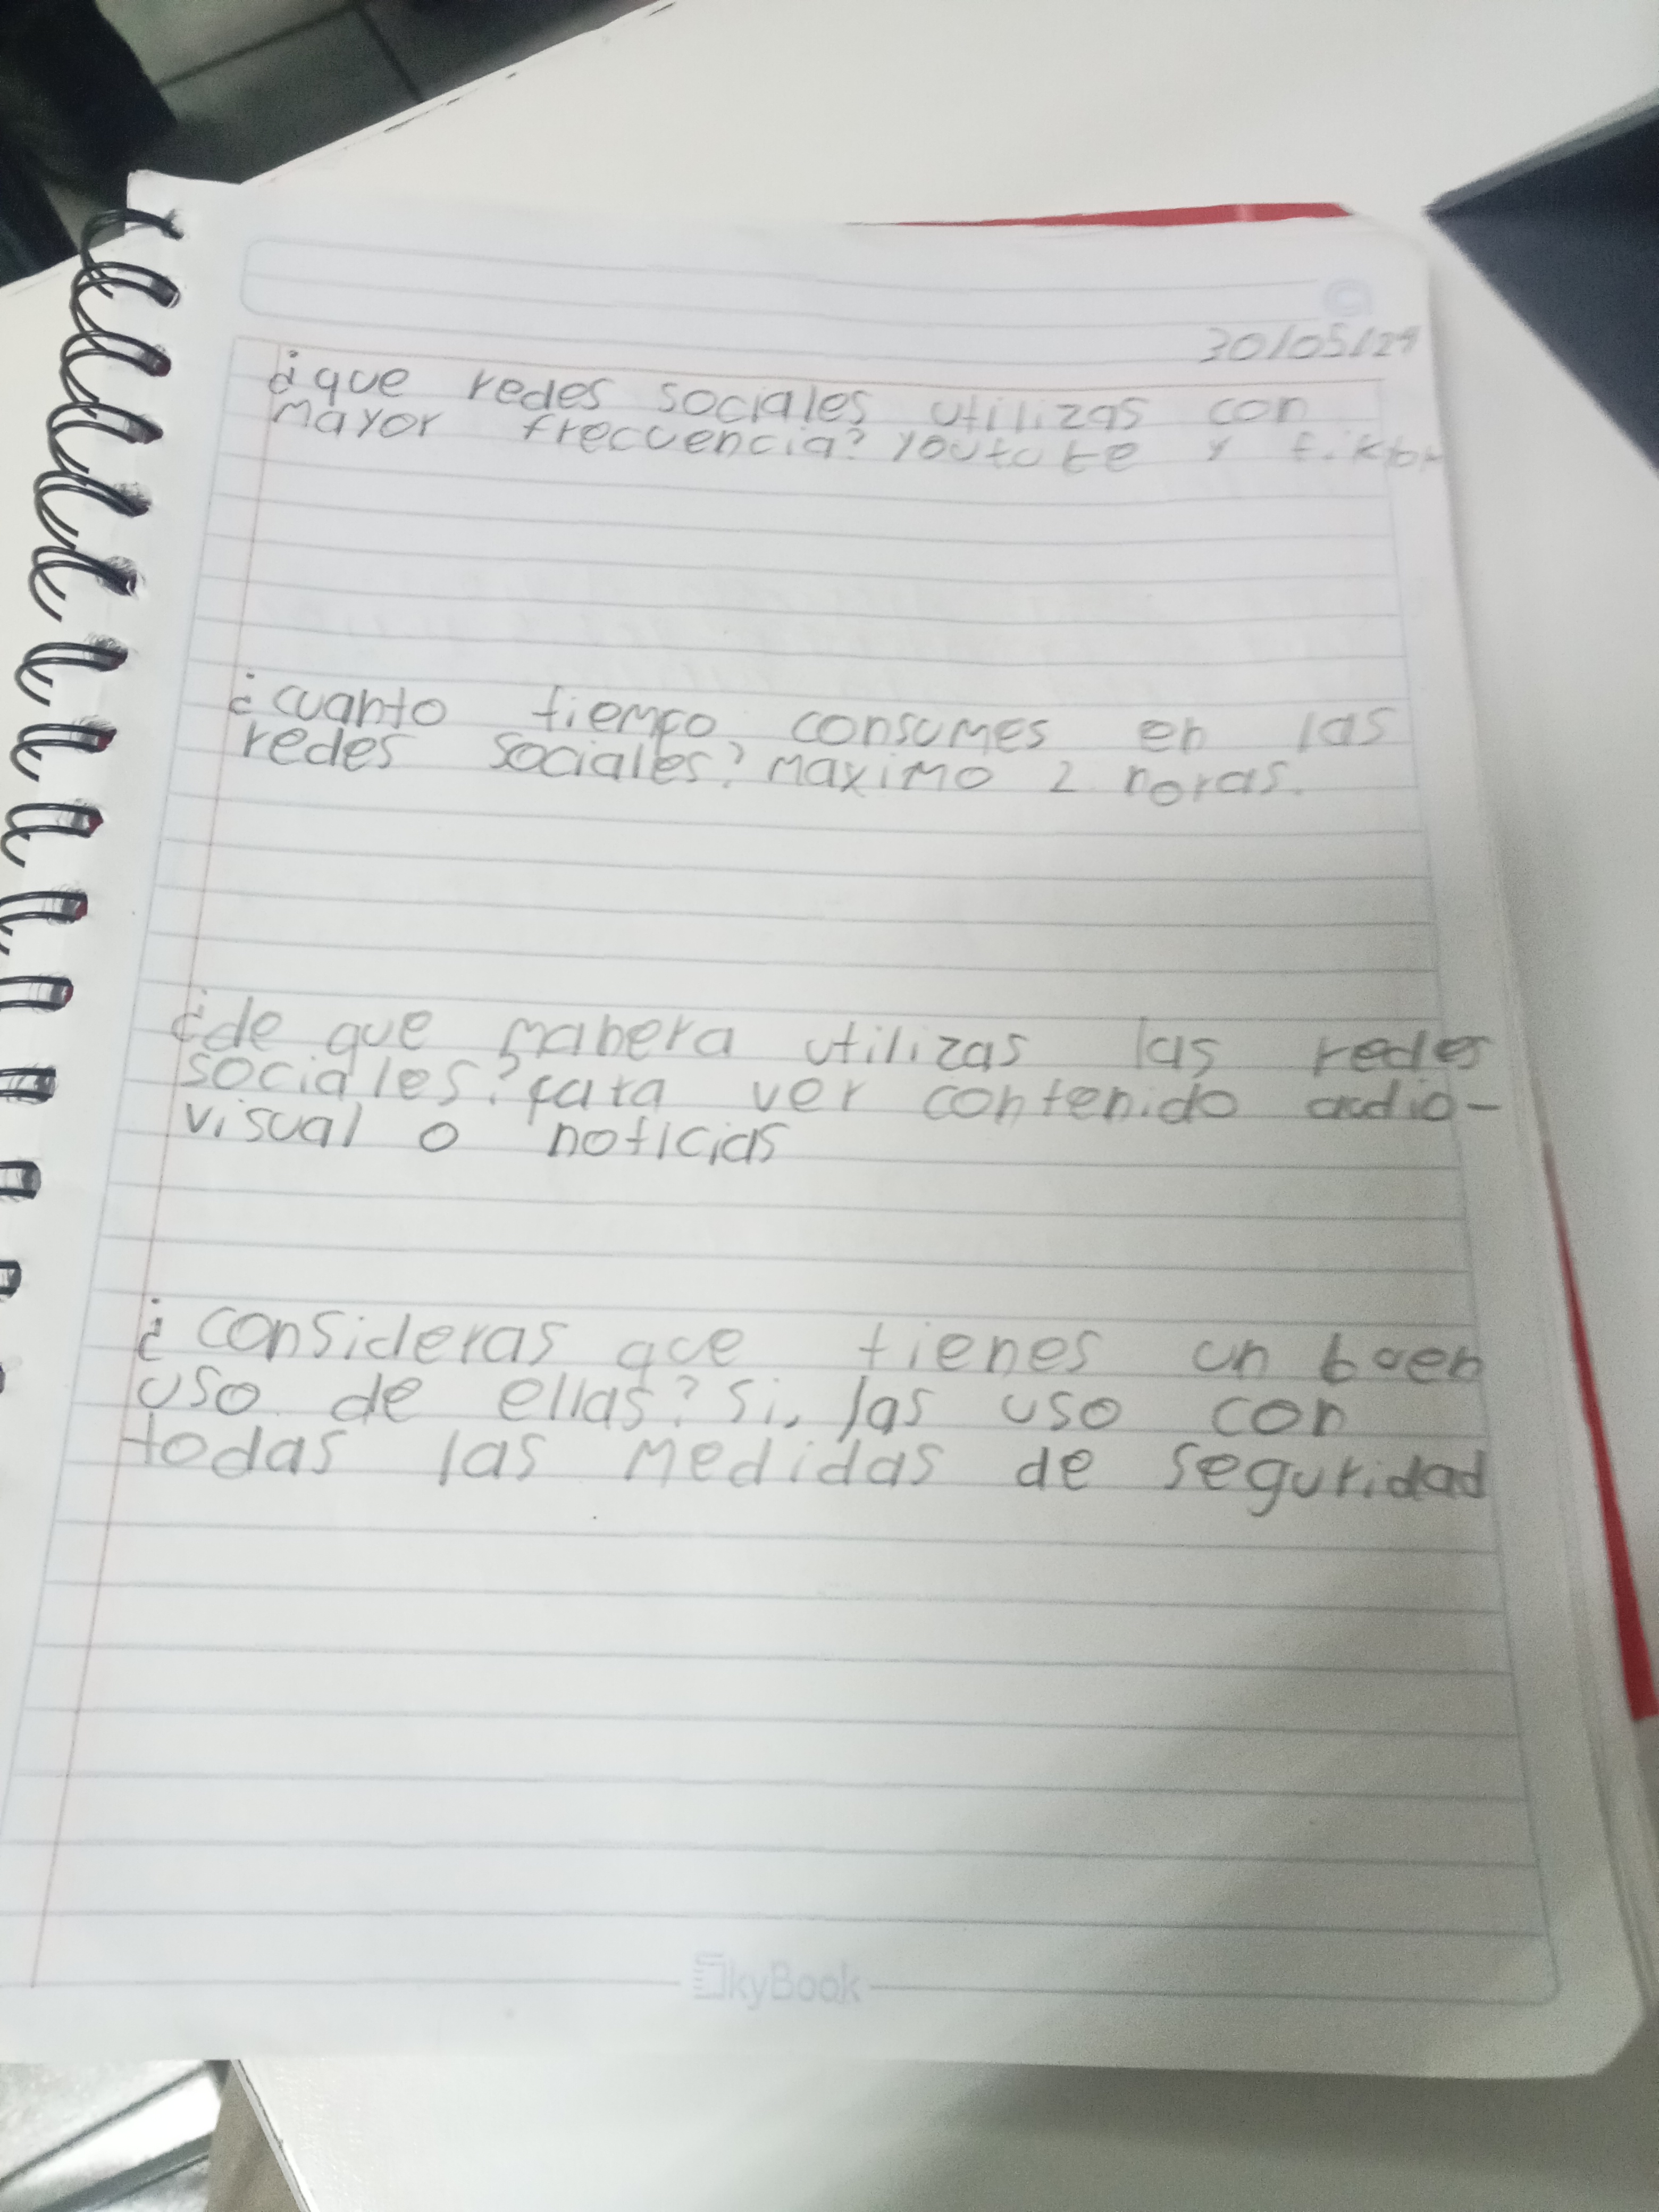 30/05/24
¿que redes sociales utilizas con
mayor frecuencia? youtube y tiktok
¿cuanto tiempo consumes en las
redes sociales? maximo 2 horas.
¿de que manera utilizas las redes
sociales? para ver contenido audio-
visual o noticias
¿consideras que tienes un buen
uso de ellas? si, las uso con
todas las medidas de seguridad
SkyBook